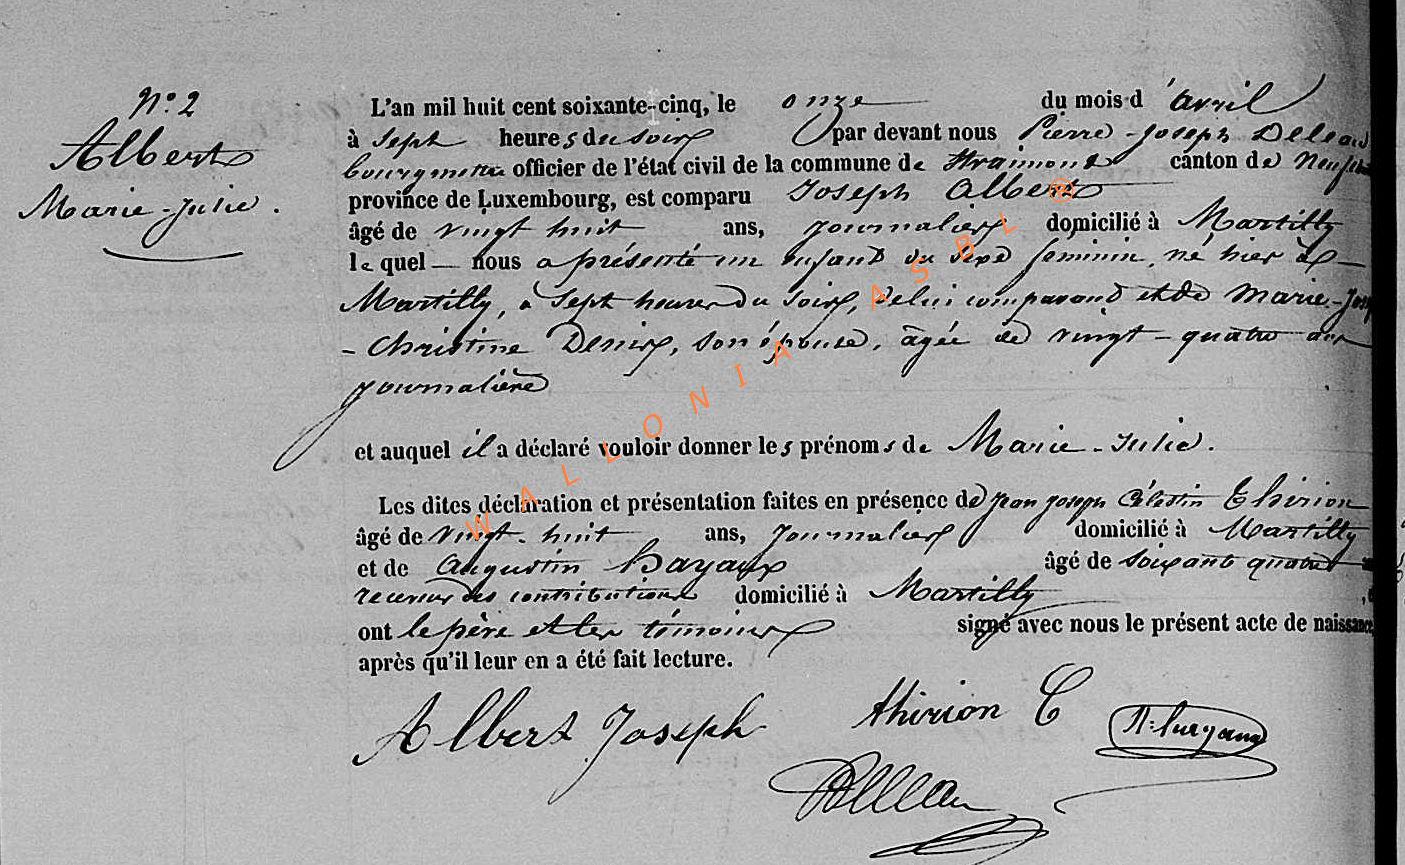 N° 2
Albert
Marie-Julie.
L'an mil huit cent soixante-cinq, le onze du mois d'avril
à sept heures du soir par devant nous Pierre-Joseph
bourgmestre officier de l'état civil de la commune de Straimont canton de
province de Luxembourg, est comparu Joseph Albert
âgé de vingt huit ans, journalier domicilié à Martilly
lequel nous a présenté un enfant du sexe féminin, né hier à
Martilly, à sept heures du soir, de lui comparant et de Marie-
- Christine Denis, son épouse, âgée de vingt-quatre ans
journalière
et auquel il a déclaré vouloir donner les prénoms de Marie-Julie.
Les dites déclaration et présentation faites en présence de Jean Joseph Célestin Thirion
âgé de vingt-huit ans, journalier domicilié à Martilly
et de Augustin âgé de soixante quatre
receveur des contributions domicilié à Martilly
ont le père et les témoins signé avec nous le présent acte de naissance
après qu'il leur en a été fait lecture.
Albert Joseph
thirion C
WALLONIA ASBL